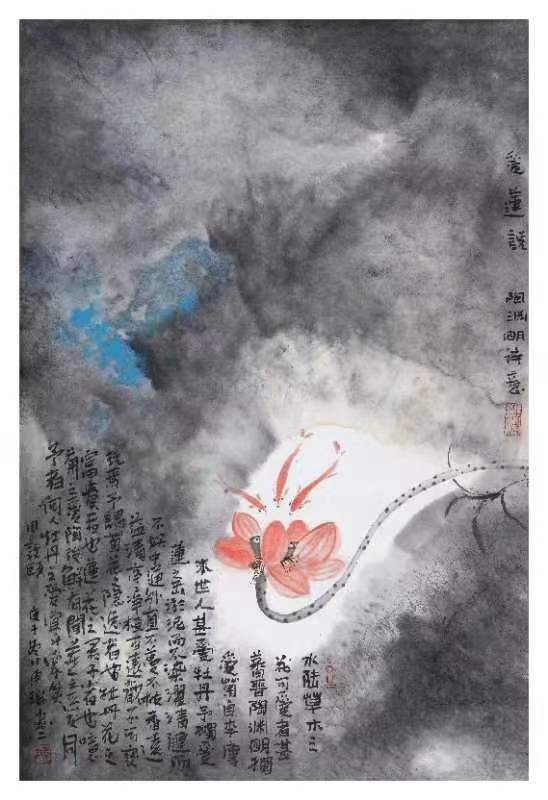 愛蓮說 陶渊明詩意
水陸草木之
花可愛者甚
蕃晋陶渊明獨
愛菊自李唐
来世人甚愛牡丹予獨愛
蓮之出於泥而不染濯清漣而
不妖中通外直不蔓不枝香遠
益清亭亭净植可遠觀而不可褻
玩焉予謂菊花隱逸者也牡丹花之
富貴者也蓮花之君子者也噫
菊之愛陶後鮮有聞蓮之愛同
予者何人牡丹之愛宜乎衆矣
庚子